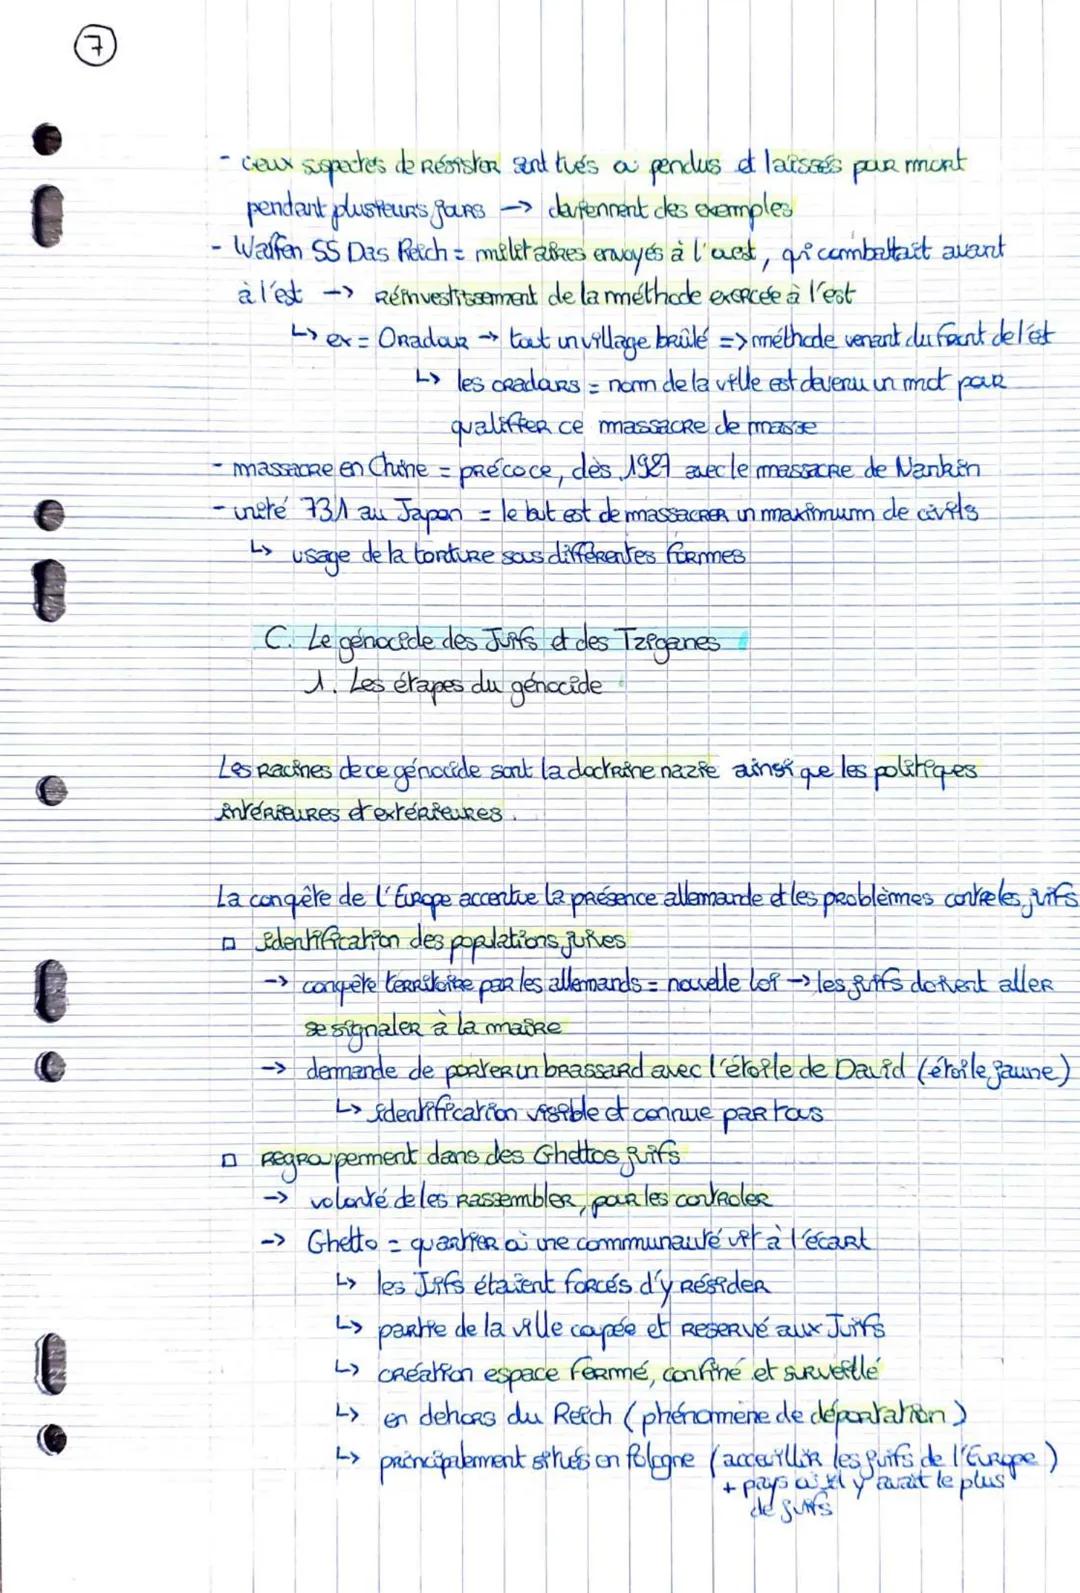 7
- ceux supectés de résister sont tués ou pendus et laissés pour mort
pendant plusieurs jours → deviennent des exemples
- Waffen SS Das Reich = militaires envoyés à l'ouest, qui combattait avant
à l'est → réinvestissement de la méthode exercée à l'est
↳ ex = Oradour → tout un village brûlé => méthode venant du front de l'est
↳ les oradours = nom de la ville est devenu un mot pour
qualifier ce massacre de masse
- massacre en Chine = précoce, dès 1937 avec le massacre de Nankin
- unité 731 au Japon = le but est de massacrer un maximum de civils
↳ usage de la torture sous différentes formes
C. Le génocide des Juifs et des Tziganes
1. Les étapes du génocide
Les racines de ce génocide sont la doctrine nazie ainsi que les politiques
intérieures et extérieures.
La conquête de l'Europe accentue la présence allemande et les problèmes contre les juifs
□ identification des populations juives
→ conquête territoire par les allemands = nouvelle loi → les juifs doivent aller
se signaler à la mairie
→ demande de porter un brassard avec l'étoile de David (étoile jaune)
↳ identification visible et connue par tous
□ regroupement dans des Ghettos juifs
→ volonté de les rassembler, pour les controler
→ Ghetto = quartier où une communauté vit à l'écart
↳ les Juifs étaient forcés d'y résider
↳ partie de la ville coupée et reservé aux Juifs
↳ création espace fermé, confiné et surveillé
↳ en dehors du Reich (phénomène de déportation)
↳ principalement situés en Pologne (accueillir les juifs de l'Europe)
+ pays où il y avait le plus
de juifs